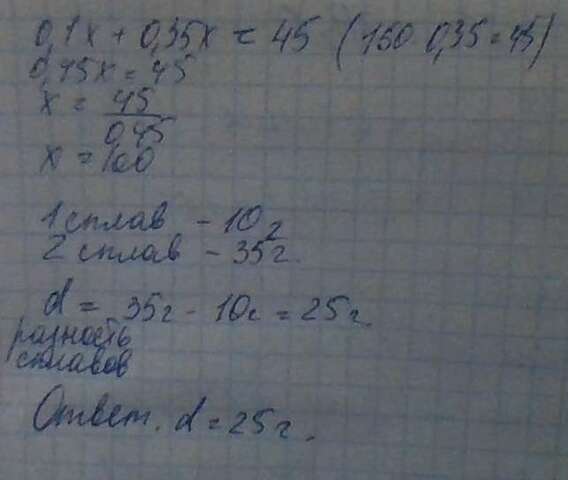 0,1x + 0,35x = 45 (150 0,35 = 45)
0,45x = 45
x = 45
0,45
x = 100
1 сплав - 10 г
2 сплав - 35 г.
d = 35г - 10г = 25г.
разность
сплавов
Ответ. d = 25г.